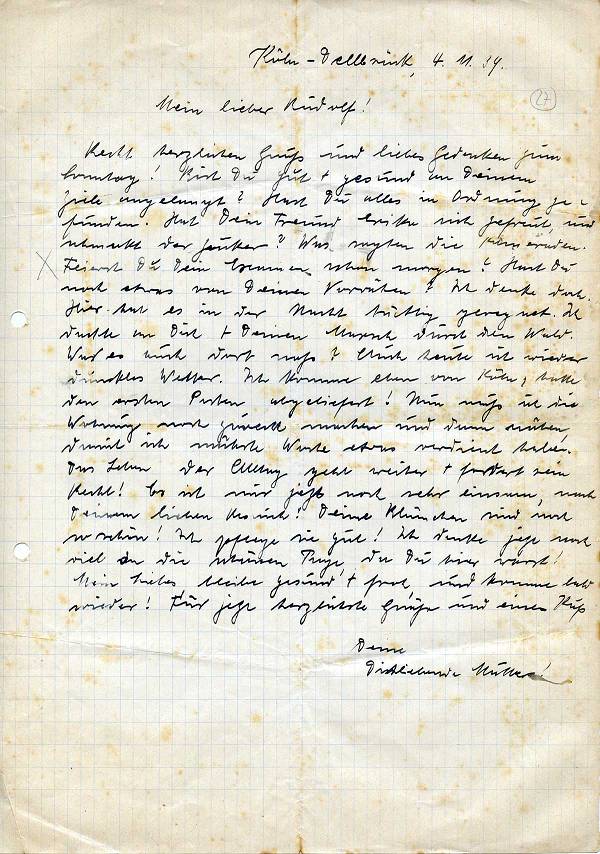 Köln-Dellbrück, 4. 11. 39.
27
Mein lieber Rudolf!
Recht herzlichen Gruß und liebes Gedenken zum
Sonntag! Bist Du gut + gesund an Deinem
Ziele angelangt? Hast Du alles in Ordnung ge-
funden. Hat Dein Freund Erika sich gefreut, und
schmeckt der Zucker? Was sagten die Kameraden.
X Feierst Du Dein Examen schon morgen? Hast Du
noch etwas von Deinen Vorräten? Ich denke doch.
Hier hat es in der Nacht tüchtig geregnet. Ich
dachte an Dich + Deinen Marsch durch den Wald.
War es auch dort naß? Auch heute ist wieder
dunkles Wetter. Ich komme eben von Köln, hatte
den ersten Posten abgeliefert! Nun muß ich die
Wohnung noch zurecht machen und dann nähen,
damit ich nächste Woche etwas verdient habe.
Das Leben der Alltag geht weiter + fordert sein
Recht! Es ist mir jetzt noch sehr einsam, nach
Deinem lieben Besuch! Deine Blümchen sind noch
so schön! Ich pflege sie gut! Ich denke jetzt noch
viel an die schönen Tage, da Du hier warst!
Mein Liebes bleibe gesund + froh, und komme bald
wieder! Für jetzt herzlichste Grüße und einen Kuß
Deine
Dichliebende Mutter!